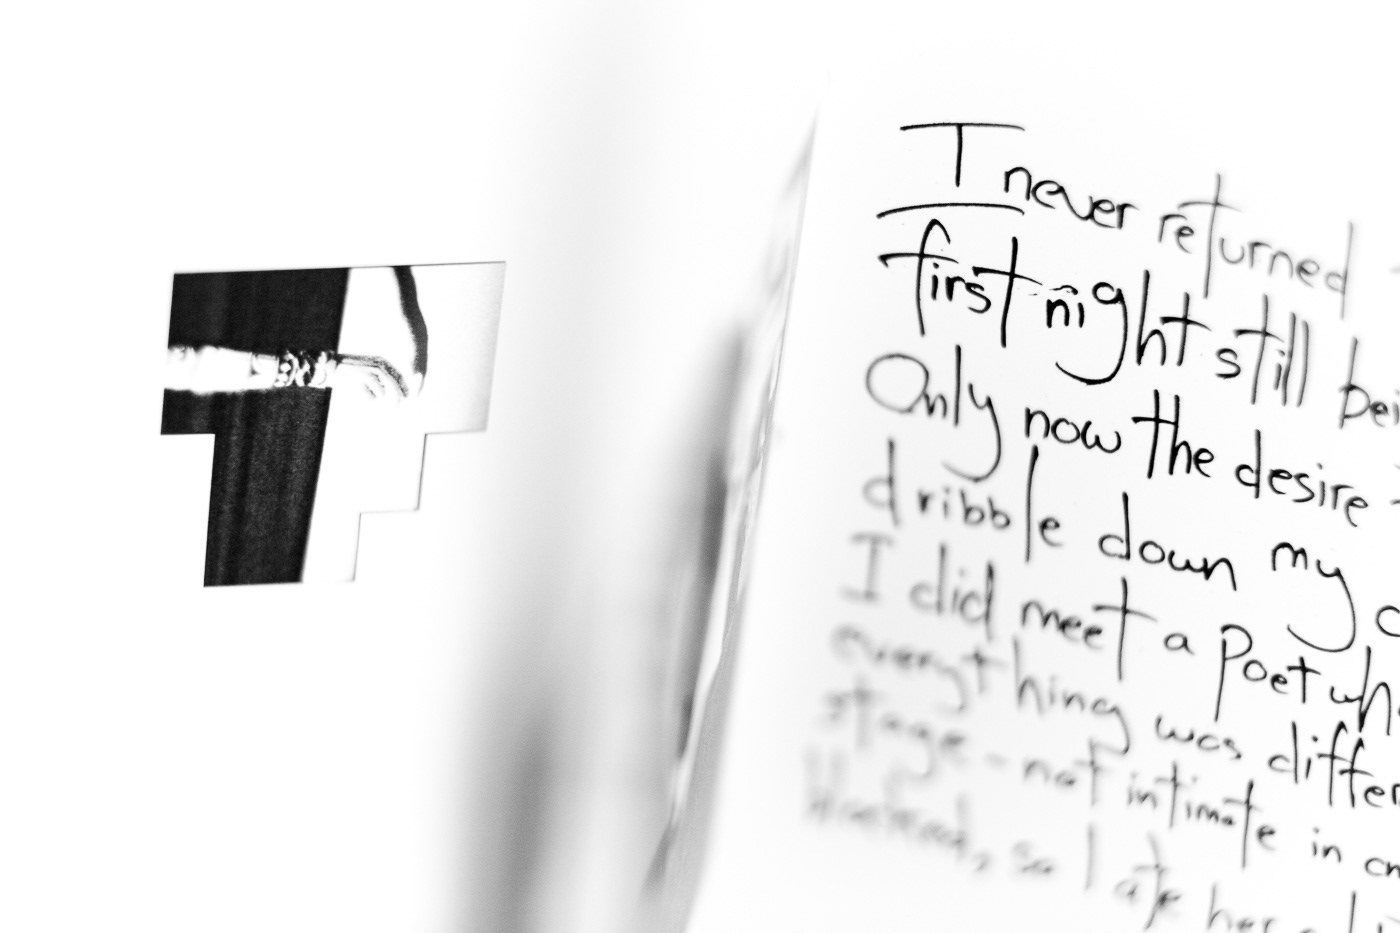 I never returned
first night still bei
Only now the desire
dribble down my
I did meet a Poet wh
everything was differ
stage - not intimate in
so I ate her